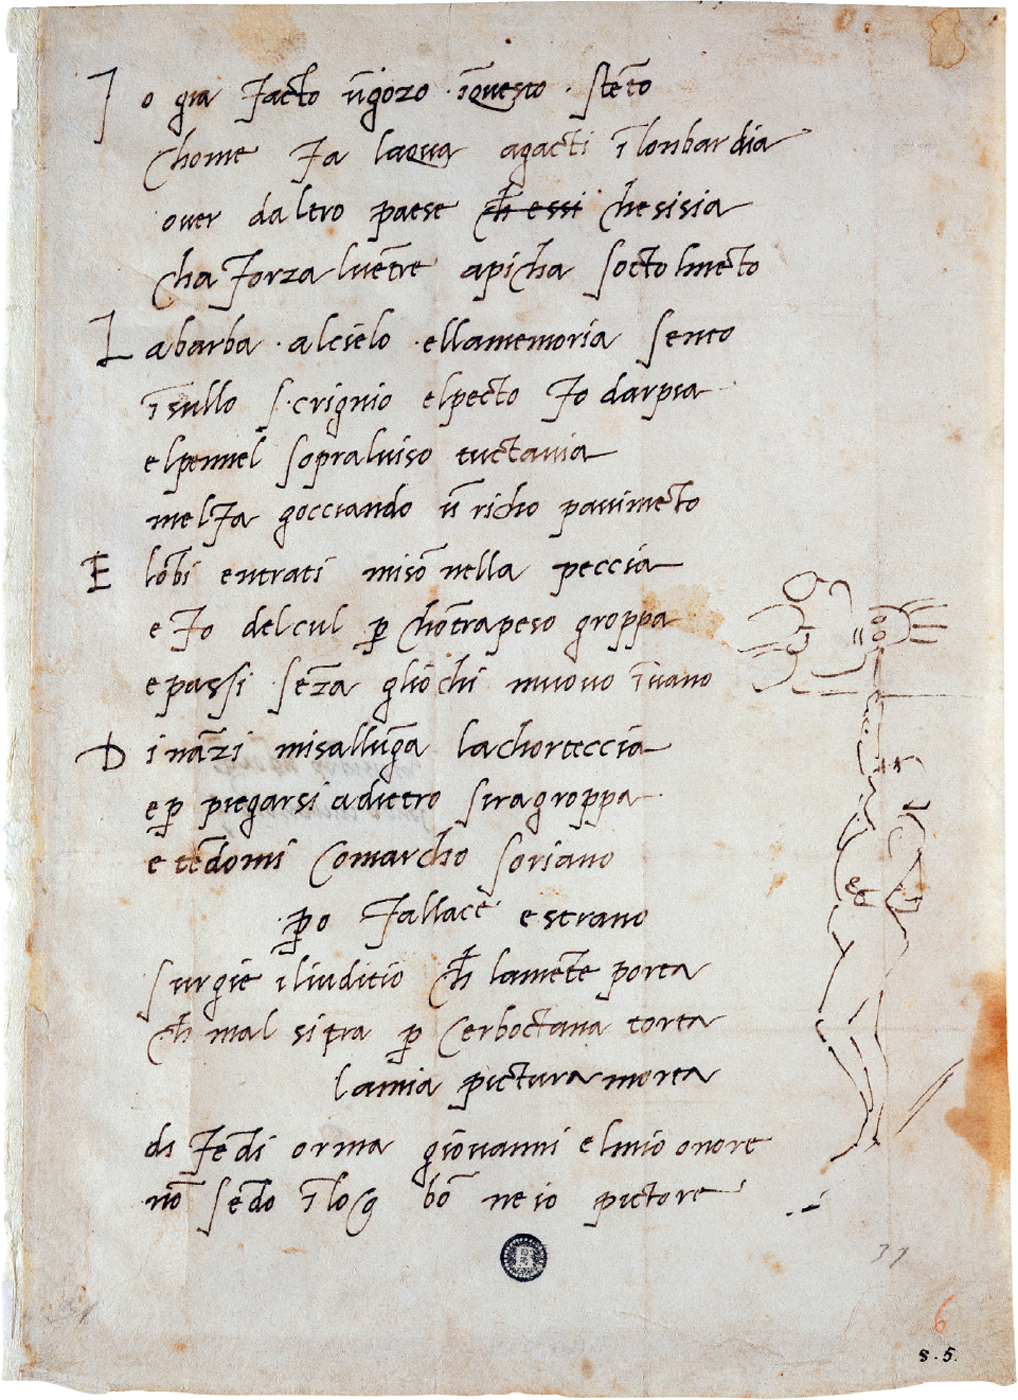 I o gia facto ūgozo · īquesto · stēto
chome fa laqua agacti ī lonbardia
over daltro paese ch̄ essi chesisia
cha forza lvētre apicha socto lmēto
L abarba · alcielo · ellamemoria sento
īsullo scrignio elpecto fo darpia
elpennel sopralviso tuctavia
melfa gocciando ū richo pavimēto
E lōbi entrati misō nella peccia
e fo delcul p̱ chōtrapeso groppa
epassi sēza gliochi muovo īvano
D ināzi misallūga lachorteccia
ep̱ piegarsi adietro siragroppa
e tēdomi comarcho soriano
p̱o fallace estrano
surgie iliuditio ch̄ lamēte porta
ch̄ mal sitra p̱ cerboctana torta
lamia pictura morta
di fēdi orma giovanni elmio onore
nō sēdo īlog bō ne io pictore
37
6
s. 5.